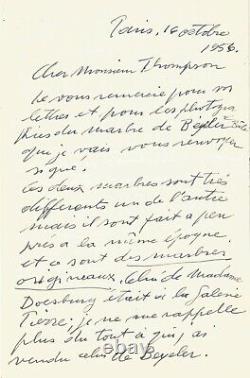 Paris, 16 octobre
1956.
Cher Monsieur Thompson
Je vous remercie pour vos
lettres et pour les photogra
phies du marbre de Beyeler
que je vais vous renvoyer
signé.
Les deux marbres sont très
differents un de l'autre
mais il sont fait a peu
pres a la même époque
et ce sont des marbres
origineaux. Celui de Madame
Doesburg était a la Galerie
Pierre; je ne me rappelle
plus du tout à qui j'ai
vendu celui de Beyeler.